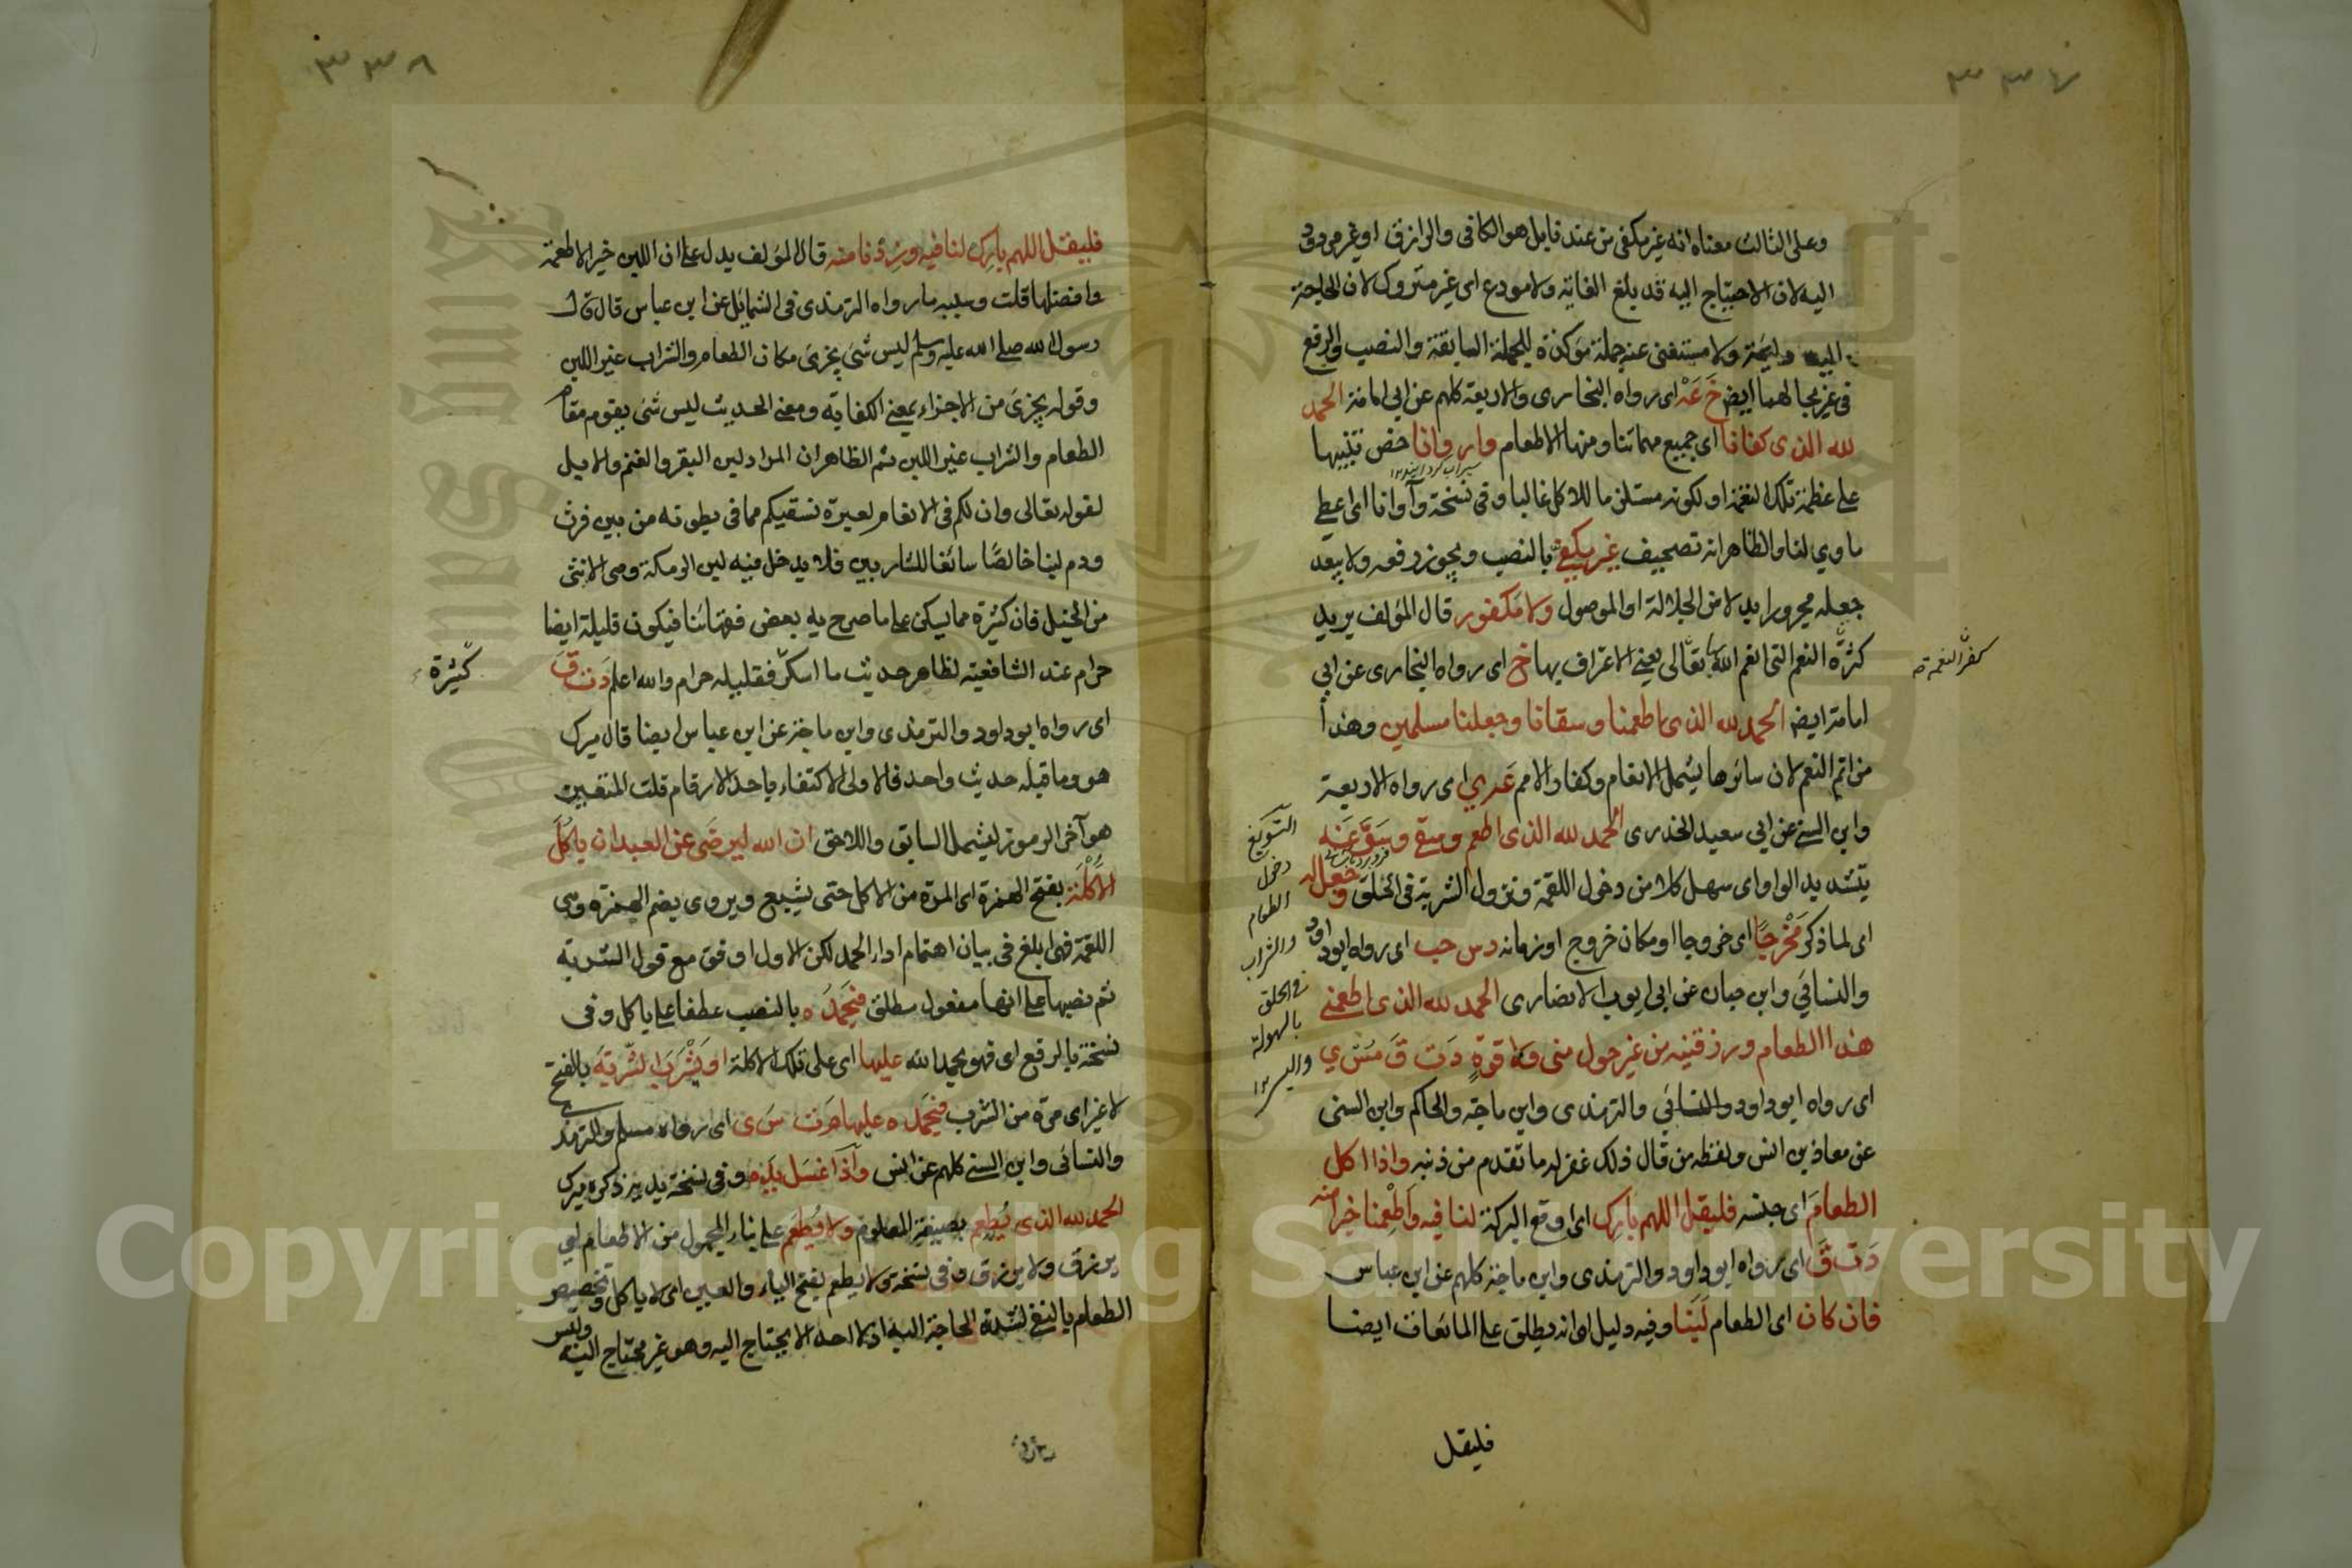 ٣٣٧
وعلى الثالث معناه انه غير مكفى من عند نا بل هو الكافى والرازق او غير مردود
اليه لان الاحتياج اليه قد بلغ الغاية ولا مودع اى غير متروك لان الحاجة
اليه دائمة ولا مستغنى عنه جملة مؤكدة للجملة السابقة والنصب والرفع
فى غير مجالهما ايضا خ عه اى رواه البخارى والاربعة كلهم عن ابى امامة الحمد
لله الذى كفانا اى جميع مهماتنا ومنها الاطعام واروانا خص
على عظمة تلك النعمة او لكونه مستلزما للاكل غالبا وفى نسخة وآوانا اى اعطى
ماوي لنا والظاهر انه تصحيف غير مكفى بالنصب ويجوز رفعه ولا يبعد
جعله مجرورا بدلا من الجلالة او الموصول ولا مكفور قال المؤلف يريد
كثرة النعم التى انعم الله بها تعالى يعنى الاعتراف بها خ اى رواه البخارى عن ابى
كفر النعمة صه
امامة ايضا الحمد لله الذى اطعمنا وسقانا وجعلنا مسلمين وهذا
من اتم النعم لان سائرها يشمل الانعام وكفار الامم عه ي اى رواه الاربعة
وابن السنى عن ابى سعيد الخدرى الحمد لله الذى اطعم وسقى وسوغه
بتشديد الواو اى سهل كلا من دخول اللقمة ونزول الشربة فى الحلق وجعل له
اى لما ذكر مخرجا اى خروجا او مكان خروج او زمانه د س حب اى رواه ابو داود
والنسائي وابن حبان عن ابى ايوب الانصارى الحمد لله الذى اطعمنى
هذا الطعام ورزقنيه من غير حول منى ولا قوة د ت ق مس ي
اى رواه ابو داود والنسائي والترمذى وابن ماجة والحاكم وابن السنى
عن معاذ بن انس ولفظه من قال ذلك غفر له ما تقدم من ذنبه واذا اكل
الطعام اى جنسه فليقل اللهم بارك اى اوقع البركة لنا فيه واطعمنا خيرا منه
د ت ق اى رواه ابو داود والترمذى وابن ماجة كلهم عن ابن عباس
فان كان اى الطعام لبنا وفيه دليل انه يطلق على المائعات ايضا
التسويغ
دخول
الطعام
والشراب
فى الحلق
بالسهولة
واليسر ١٢
فليقل
٣٣٨
فليقل اللهم بارك لنا فيه وزدنا منه قال المؤلف يدل على ان اللبن خير الاطعمة
وافضلها قلت وسببه ما رواه الترمذى فى الشمائل عن ابن عباس قال قال
رسول الله صلى الله عليه وسلم ليس شئ يجزئ مكان الطعام والشراب غير اللبن
وقوله يجزئ من الاجزاء بمعنى الكفاية ومعنى الحديث ليس شئ يقوم مقام
الطعام والشراب غير اللبن ثم الظاهر ان المراد لبن البقر والغنم والابل
لقوله تعالى وان لكم فى الانعام لعبرة نسقيكم مما فى بطونه من بين فرث
ودم لبنا خالصا سائغا للشاربين فلا يدخل فيه لبن الرمكة وهى الانثى
من الخيل فان كثيره مما يسكن على ما صرح به بعض فقهائنا فيكون قليله ايضا
حرام عند الشافعية لظاهر حديث ما اسكر فقليله حرام والله اعلم د ت ق
كثيرة
اى رواه ابو داود والترمذى وابن ماجة عن ابن عباس ايضا قال ميرك
هو وما قبله حديث واحد فالاولى الاكتفاء باحد الارقام قلت المتعين
هو آخر الرموز ليشمل السابق واللاحق ان الله ليرضى عن العبد ان ياكل
الاكلة بفتح الهمزة اى المرة من الاكل حتى يشبع ويروى بضم الهمزة وهى
اللقمة فهى ابلغ فى بيان اهتمام اداء الحمد لكن الاول اوفق مع قول الشربة
ثم نصبها على انها مفعول مطلق فيحمده بالنصب عطفا على ياكل وفى
نسخة بالرفع اى فهو يحمد الله عليها اى على تلك الاكلة او يشرب الشربة بالفتح
لا غير اى مرة من الشرب فيحمده عليها م ت س ى اى رواه مسلم والترمذى
والنسائى وابن السنى كلهم عن انس واذا غسل يده وفى نسخة يديه ذكره ميرك
الحمد لله الذى يطعم بصيغة المعلوم ولا يطعم على بناء المجهول من الاطعام اى
يرزق ولا يرزق وفى نسخة ولا يطعم بفتح الياء والعين اى لا ياكل وتخصيص
الطعام بالنفى لشدة الحاجة اليه اذ لا احد الا يحتاج اليه وهو غير محتاج اليه